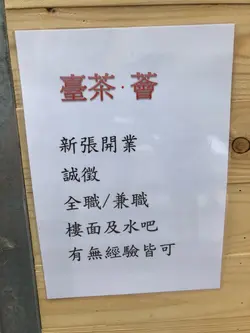 臺茶·薈
新張開業
誠徵
全職/兼職
樓面及水吧
有無經驗皆可